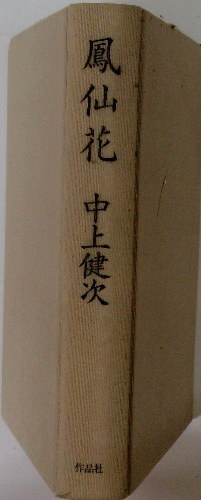 鳳仙花
中上健次
作品社